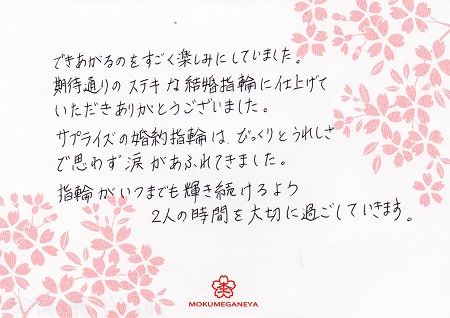 できあがるのをすごく楽しみにしていました。
期待通りのステキな結婚指輪に仕上げて
いただきありがとうございました。
サプライズの婚約指輪は、びっくりとうれしさ
で思わず涙があふれてきました。
指輪がいつまでも輝き続けるよう
2人の時間を大切に過ごしていきます。
MOKUMEGANEYA